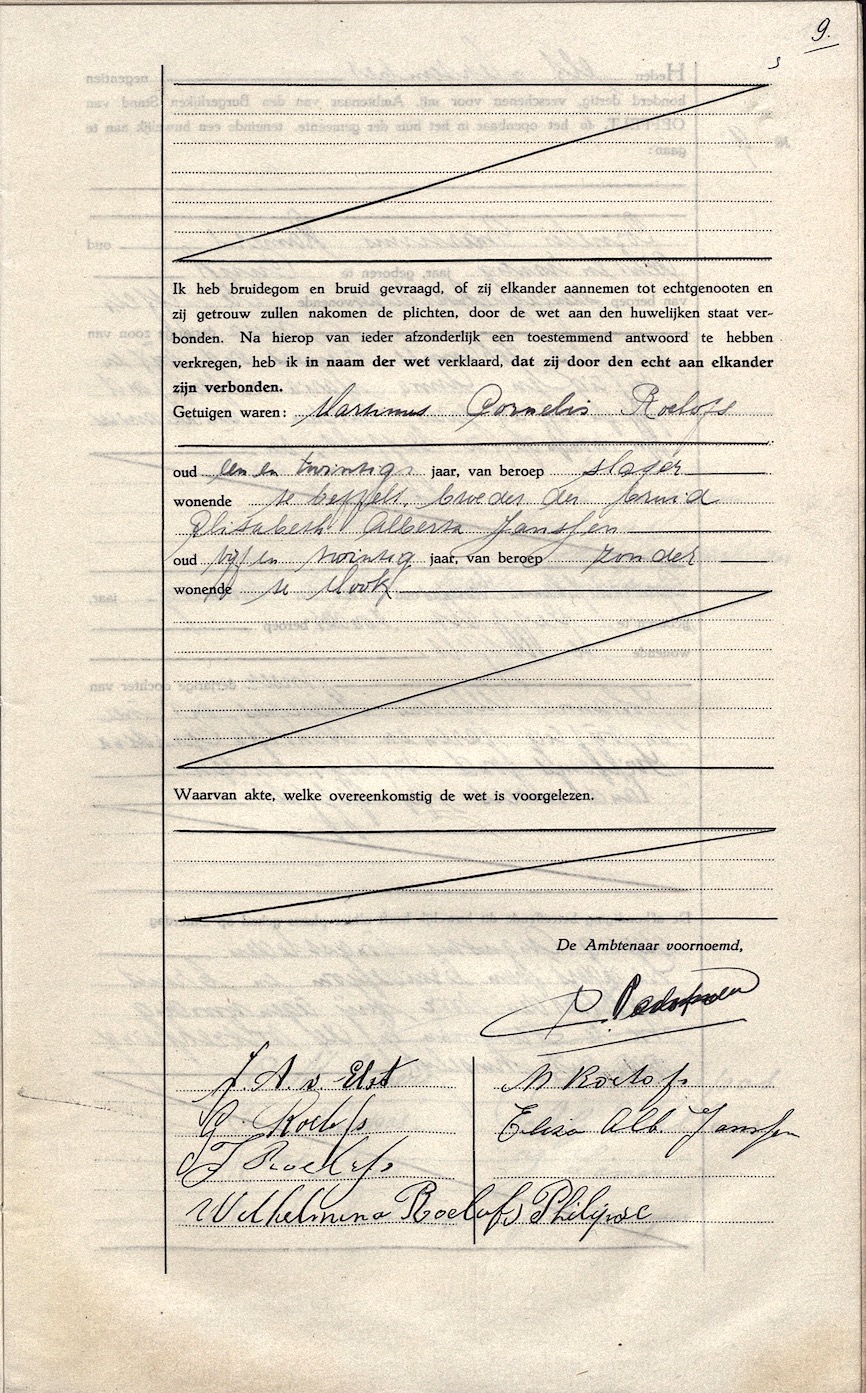 9.
Ik heb bruidegom en bruid gevraagd, of zij elkander aannemen tot echtgenooten en
zij getrouw zullen nakomen de plichten, door de wet aan den huwelijken staat ver-
bonden. Na hierop van ieder afzonderlijk een toestemmend antwoord te hebben
verkregen, heb ik in naam der wet verklaard, dat zij door den echt aan elkander
zijn verbonden.
Getuigen waren: Martinus Cornelis Roelofs
oud een en twintig jaar, van beroep slager
wonende te Oeffelt, broeder der bruid
Elisabeth Alberta Janssen
oud vijf en twintig jaar, van beroep zonder
wonende te Mook
Waarvan akte, welke overeenkomstig de wet is voorgelezen.
De Ambtenaar voornoemd,
J. A. v. Elst
M Roelofs
G. Roelofs
Eliza Alb Janssen
Roelofs
Wilhelmina Roelofs Philipse